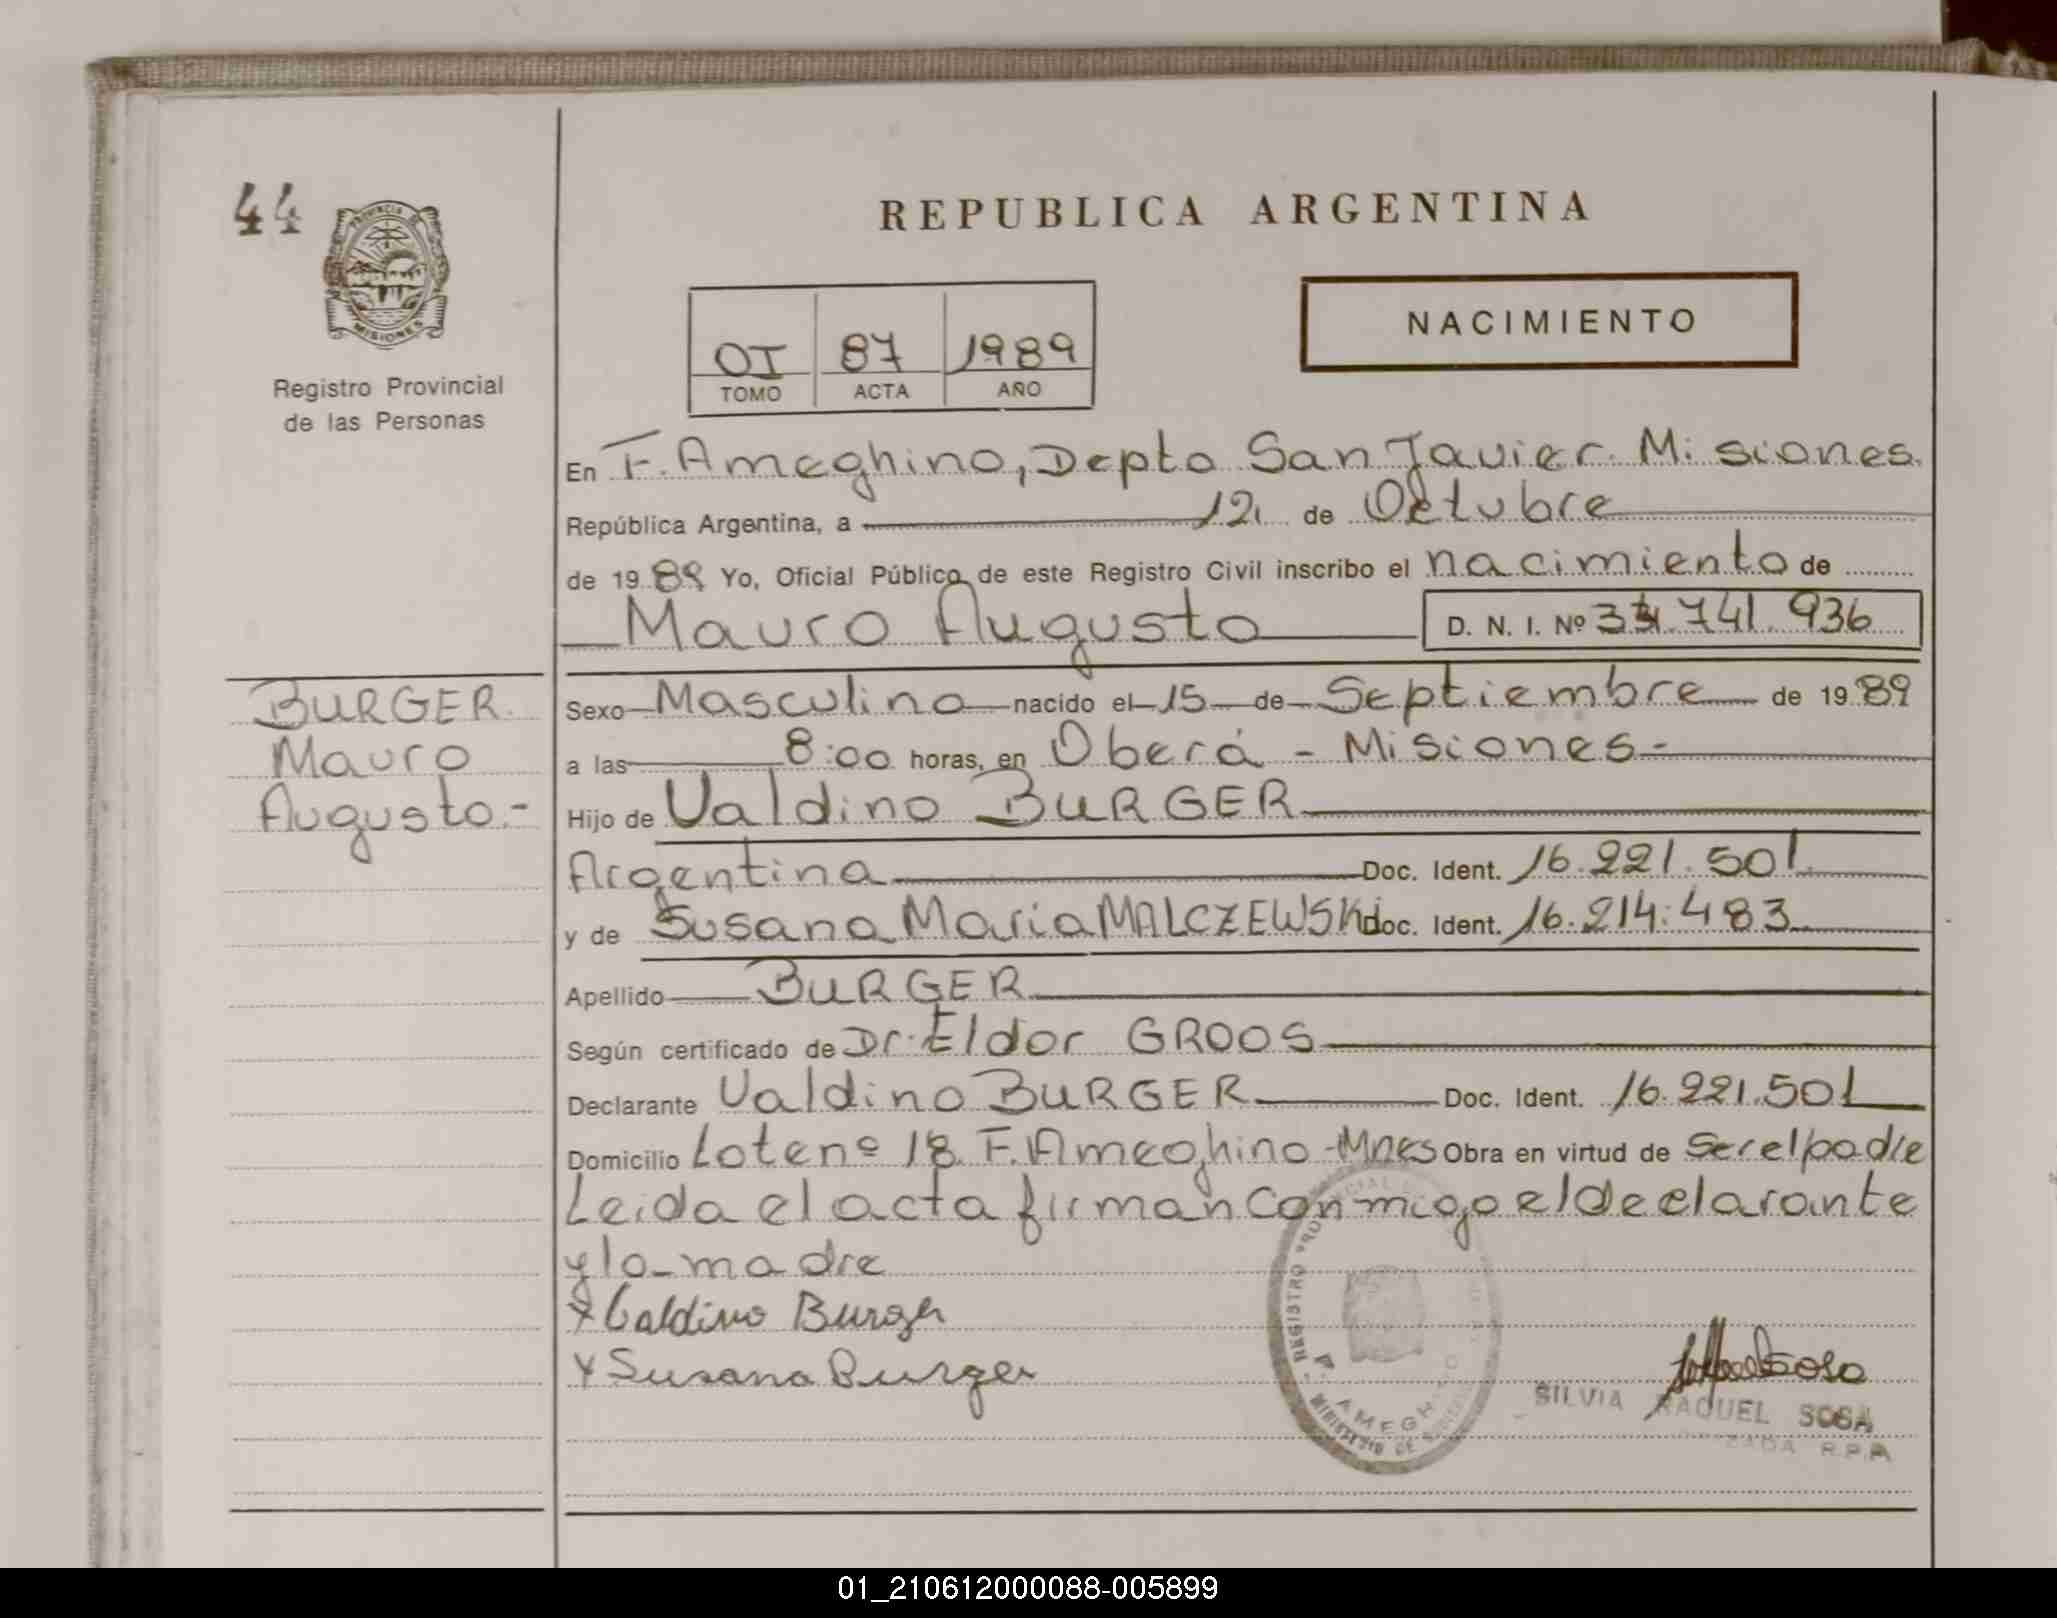 44
PROVINCIA DE
MISIONES
Registro Provincial
de las Personas
REPUBLICA ARGENTINA
NACIMIENTO
OI 87 1989
TOMO ACTA AÑO
En F. Ameghino, Depto San Javier. Misiones.
República Argentina, a 12 de Octubre
de 1989 Yo, Oficial Público de este Registro Civil inscribo el nacimiento de
Mauro Augusto D. N. I. Nº .741.936
BURGER
Mauro
Augusto.-
Sexo Masculino nacido el 15 de Septiembre de 1989
a las 8:00 horas, en Oberá - Misiones -
Hijo de Valdino BURGER
Argentina Doc. Ident. 16.221.501
y de Susana Maria MALCZEWSKI doc. Ident. 16.214.483
Apellido BURGER
Según certificado de Dr. Eldor GROOS
Declarante Valdino BURGER Doc. Ident. 16.221.501
Domicilio Lote nº 18 F. Ameghino - Mnes Obra en virtud de Ser el padre
Leida el acta firman conmigo el declarante
y la madre
x Valdino Burger
x Susana Burger
REGISTRO PROVINCIAL
F. AMEGHINO
MINISTERIO DE
SILVIA RAQUEL SOSA
R.P.P.
01_210612000088-005899